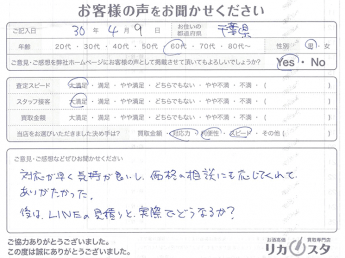 お客様の声をお聞かせください
ご記入日 30年 4月 9日 お住いの都道府県 千葉県
年齢 20代・30代・40代・50代・60代・70代・80代〜 性別 男・女
ご意見・ご感想を弊社ホームページにお客様の声として掲載させて頂いてもよろしいでしょうか? Yes・No
査定スピード 大満足・満足・やや満足・どちらでもない・やや不満・不満( )
スタッフ接客 大満足・満足・やや満足・どちらでもない・やや不満・不満( )
買取金額 大満足・満足・やや満足・どちらでもない・やや不満・不満( )
当店をお選びいただきました決め手は? 買取金額・対応力・利便性・スピード・その他( )
ご意見・ご感想などぜひお聞かせください
対応が早く気持が良いし、価格の相談にも応じてくれて、
ありがたかった。
後は、LINEの見積りと、実際でどうなるか?
ご協力ありがとうございました。
この度は誠にありがとうございました。
お酒高価買取専門店
リカスタ